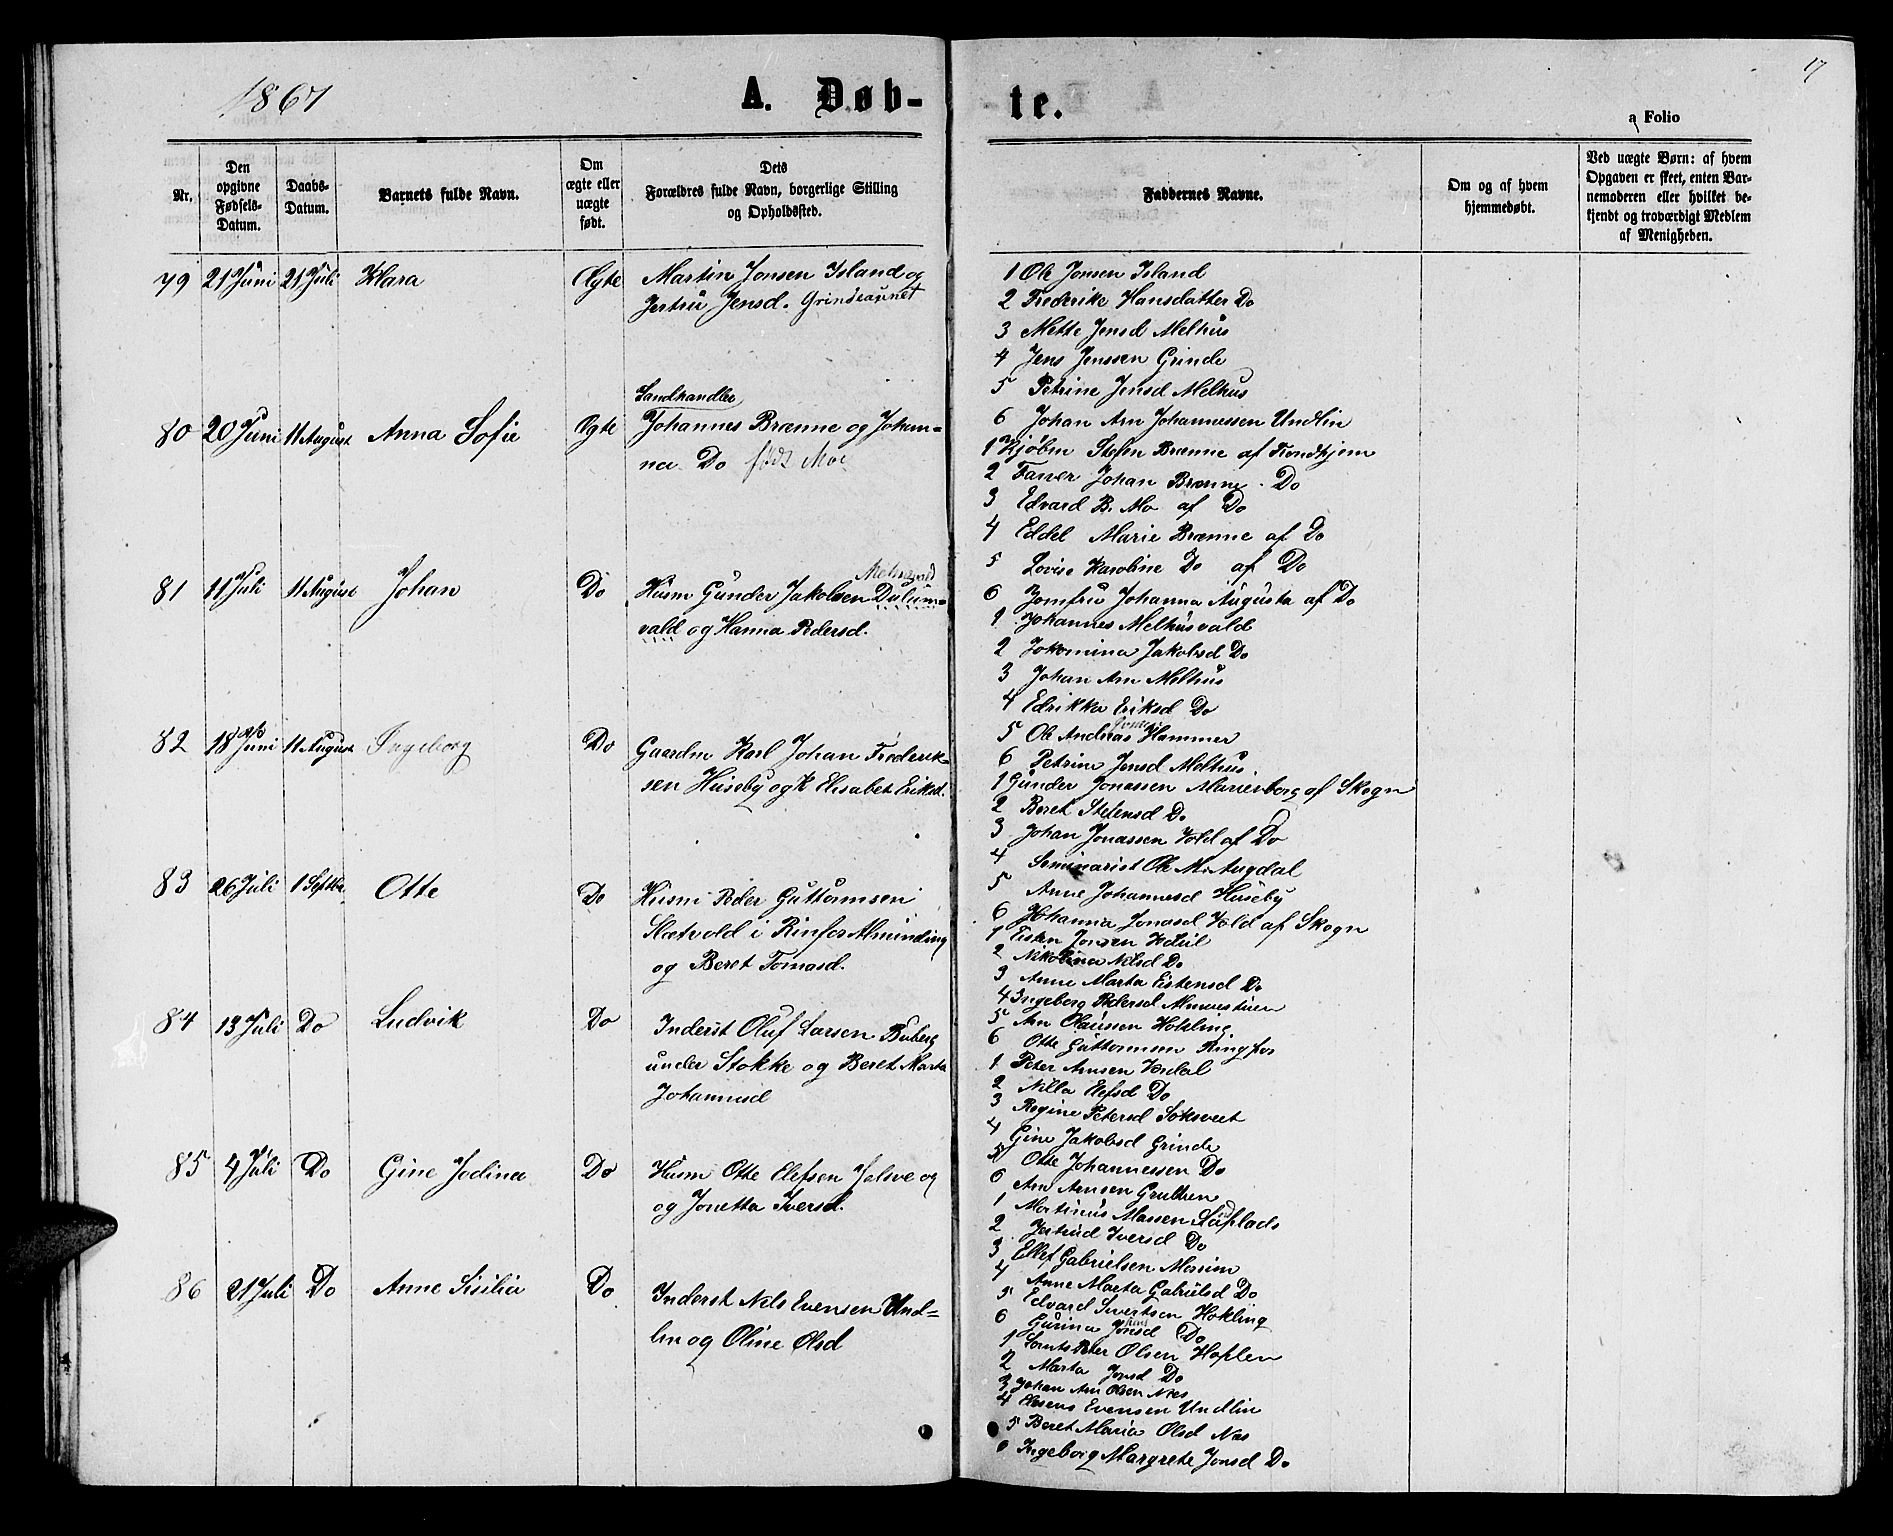 1867
A. Døb-
Nr.
Den
opgivne
Fødsels-
Datum.
Daabs-
Datum.
Barnets fulde Navn.
Om
ægte eller
uægte
født.
Dets
Forældres fulde Navn, borgerlige Stilling
og Opholdssted.
79 21 Juni 21 Juli Klara Ægte Martin Jonsen Island og
Jertru Jensd. Grindeaunet
Landhandler
80 20 Juni 11 August Anna Sofie Ægte Johannes Brænne og Johan=
na Do født Moe
81 11 Juli 11 August Johan Do Husm Gunder Jakobsen Dalum=
vald og Hanna Pedersd.
82 18 Juni 11 August Ingeborg Do Gaardm Karl Johan Frederik=
sen Huseby og K Elisabet Eriksd.
83 26 Juli 1 Septbr. Otte Do Husm Peder Guttormsen
Sletvold i Rinfos Alminding
og Beret Tomasd.
84 13 Juli Do Ludvik Do Inderst Oluf Larsen
under Stokke og Beret Marta
Johannesd
85 4 Juli Do Gine Jodina Do Husm Otte Elefsen Jelsve og
og Jonetta Iversd.
86 21 Juli Do Anne Sisilia Do Inderst Nels Evensen Und=
lin og Oline Olsd
17
te.
a Folio
Faddernes Navne.
Om og af hvem
hjemmedøbt.
Ved uægte Børn: af hvem
Opgaven er skeet, enten Bar-
nemoderen eller hvilket be-
kjendt og troværdigt Medlem
af Menigheden.
1 Ole Jonsen Island
2 Frederike Hansdatter Do
3 Mette Jensd Melhus
4 Jens Jenssen Grinde
5 Petrine Jensd Melhus
6 Johan Arn Johannessen Undlin
1 Kjøbm Stefen Brænne af Trondhjem
2 Farver Johan Brænne Do
3 Edvard B. Mo af Do
4 Eddel Marie Brænne af Do
5 Lovise Karoline Do af Do
6 Jomfru Johanna Augusta af Do
1 Johannes Melhusvald
2 Jokomina Jakobsd Do
3 Johan Arn Melhus
4 Edrikka Eriksd Do
5 Ole Andreas Hammer
6 Petrine Jensd Melhus
1 Gunder Jonassen Marienborg af Skogn
2 Beret Stefensd Do
3 Johan Jonassen Vold af Do
4 Seminarist Ole M. Augdal
5 Anne Johannesd Huseby
6 Johanna Jonasd Vold af Skogn
1 Eisten Jonsen
2 Nikolina Nelsd Do
3 Anne Marta Eistensd Do
4 Ingeborg Pedersd
5 Arn Olaussen Hokling
6 Otte Guttormsen Ringfos
1 Peter Arnsen Verdal
2 Nilla Elefsd Do
3 Regine Petersd
4 Gine Jakobsd Grinde
5 Otte Johannessen Do
6 Arn Arnsen
1 Martinus Massen
2 Jertrud Iversd Do
3 Ellef Gabrielsen
4 Anne Marta Gabrielsd Do
5 Edvard Sivertsen Hokling
6 Gurina Jonsd Do
1 Peter Olsen Hoplen
2 Marta Jonsd Do
3 Johan Arn Olsen Næs
4 Evensen Undlin
5 Beret Maria Olsd Næs
6 Ingeborg Margrete Jonsd Do